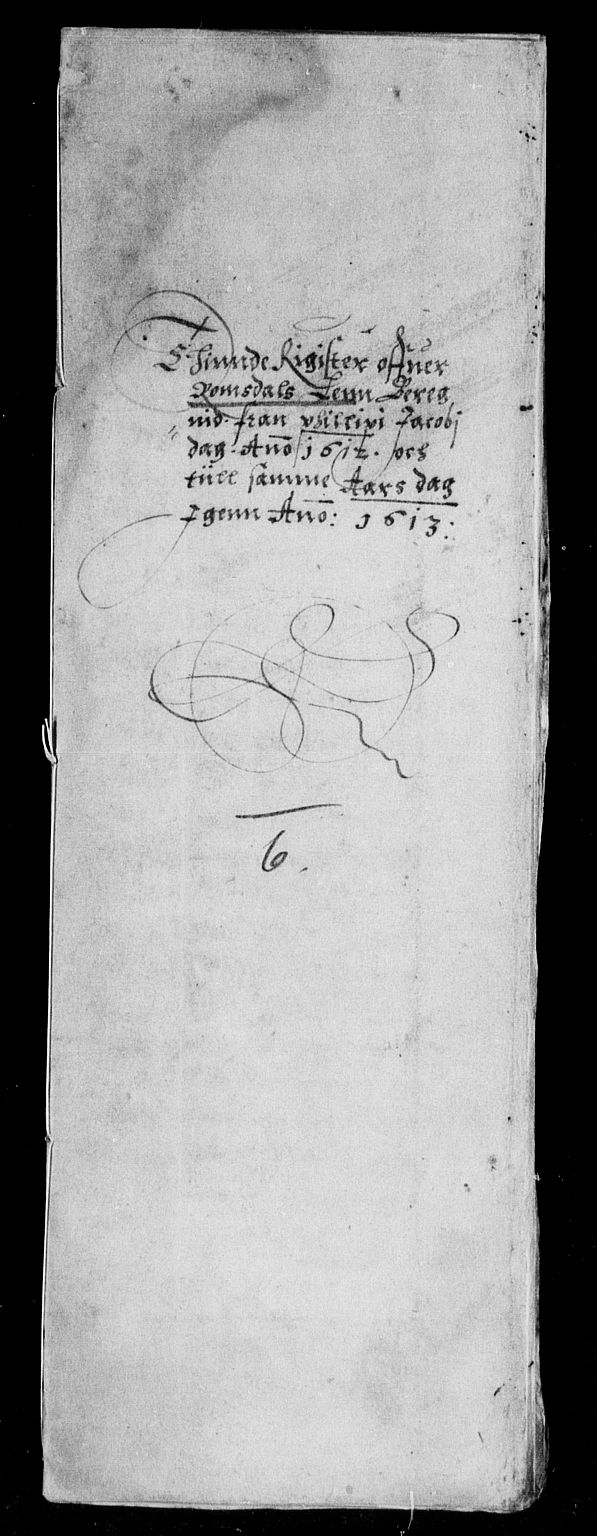 Thiende Rigister offuer
Romsdals Lenn Bereg
nid. fran philippi Jacobj
dag. Ano 1612. och
tiill samme Aars dag
Igenn Ano: 1613:
6.